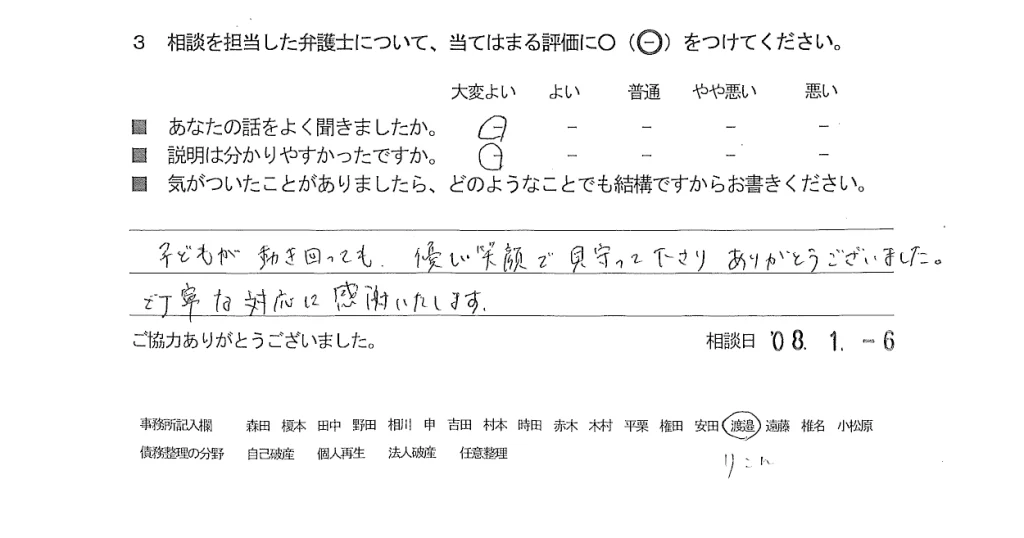 3 相談を担当した弁護士について、当てはまる評価に○(㊀)をつけてください。
大変よい よい 普通 やや悪い 悪い
■ あなたの話をよく聞きましたか。 − − − − −
■ 説明は分かりやすかったですか。 − − − − −
■ 気がついたことがありましたら、どのようなことでも結構ですからお書きください。
子どもが動き回っても、優しい笑顔で見守って下さりありがとうございました。
ご丁寧な対応に感謝いたします。
ご協力ありがとうございました。 相談日 '08. 1. -6
事務所記入欄 森田 榎本 田中 野田 相川 申 吉田 村本 時田 赤木 木村 平栗 権田 安田 渡邉 遠藤 椎名 小松原
債務整理の分野 自己破産 個人再生 法人破産 任意整理
りこん